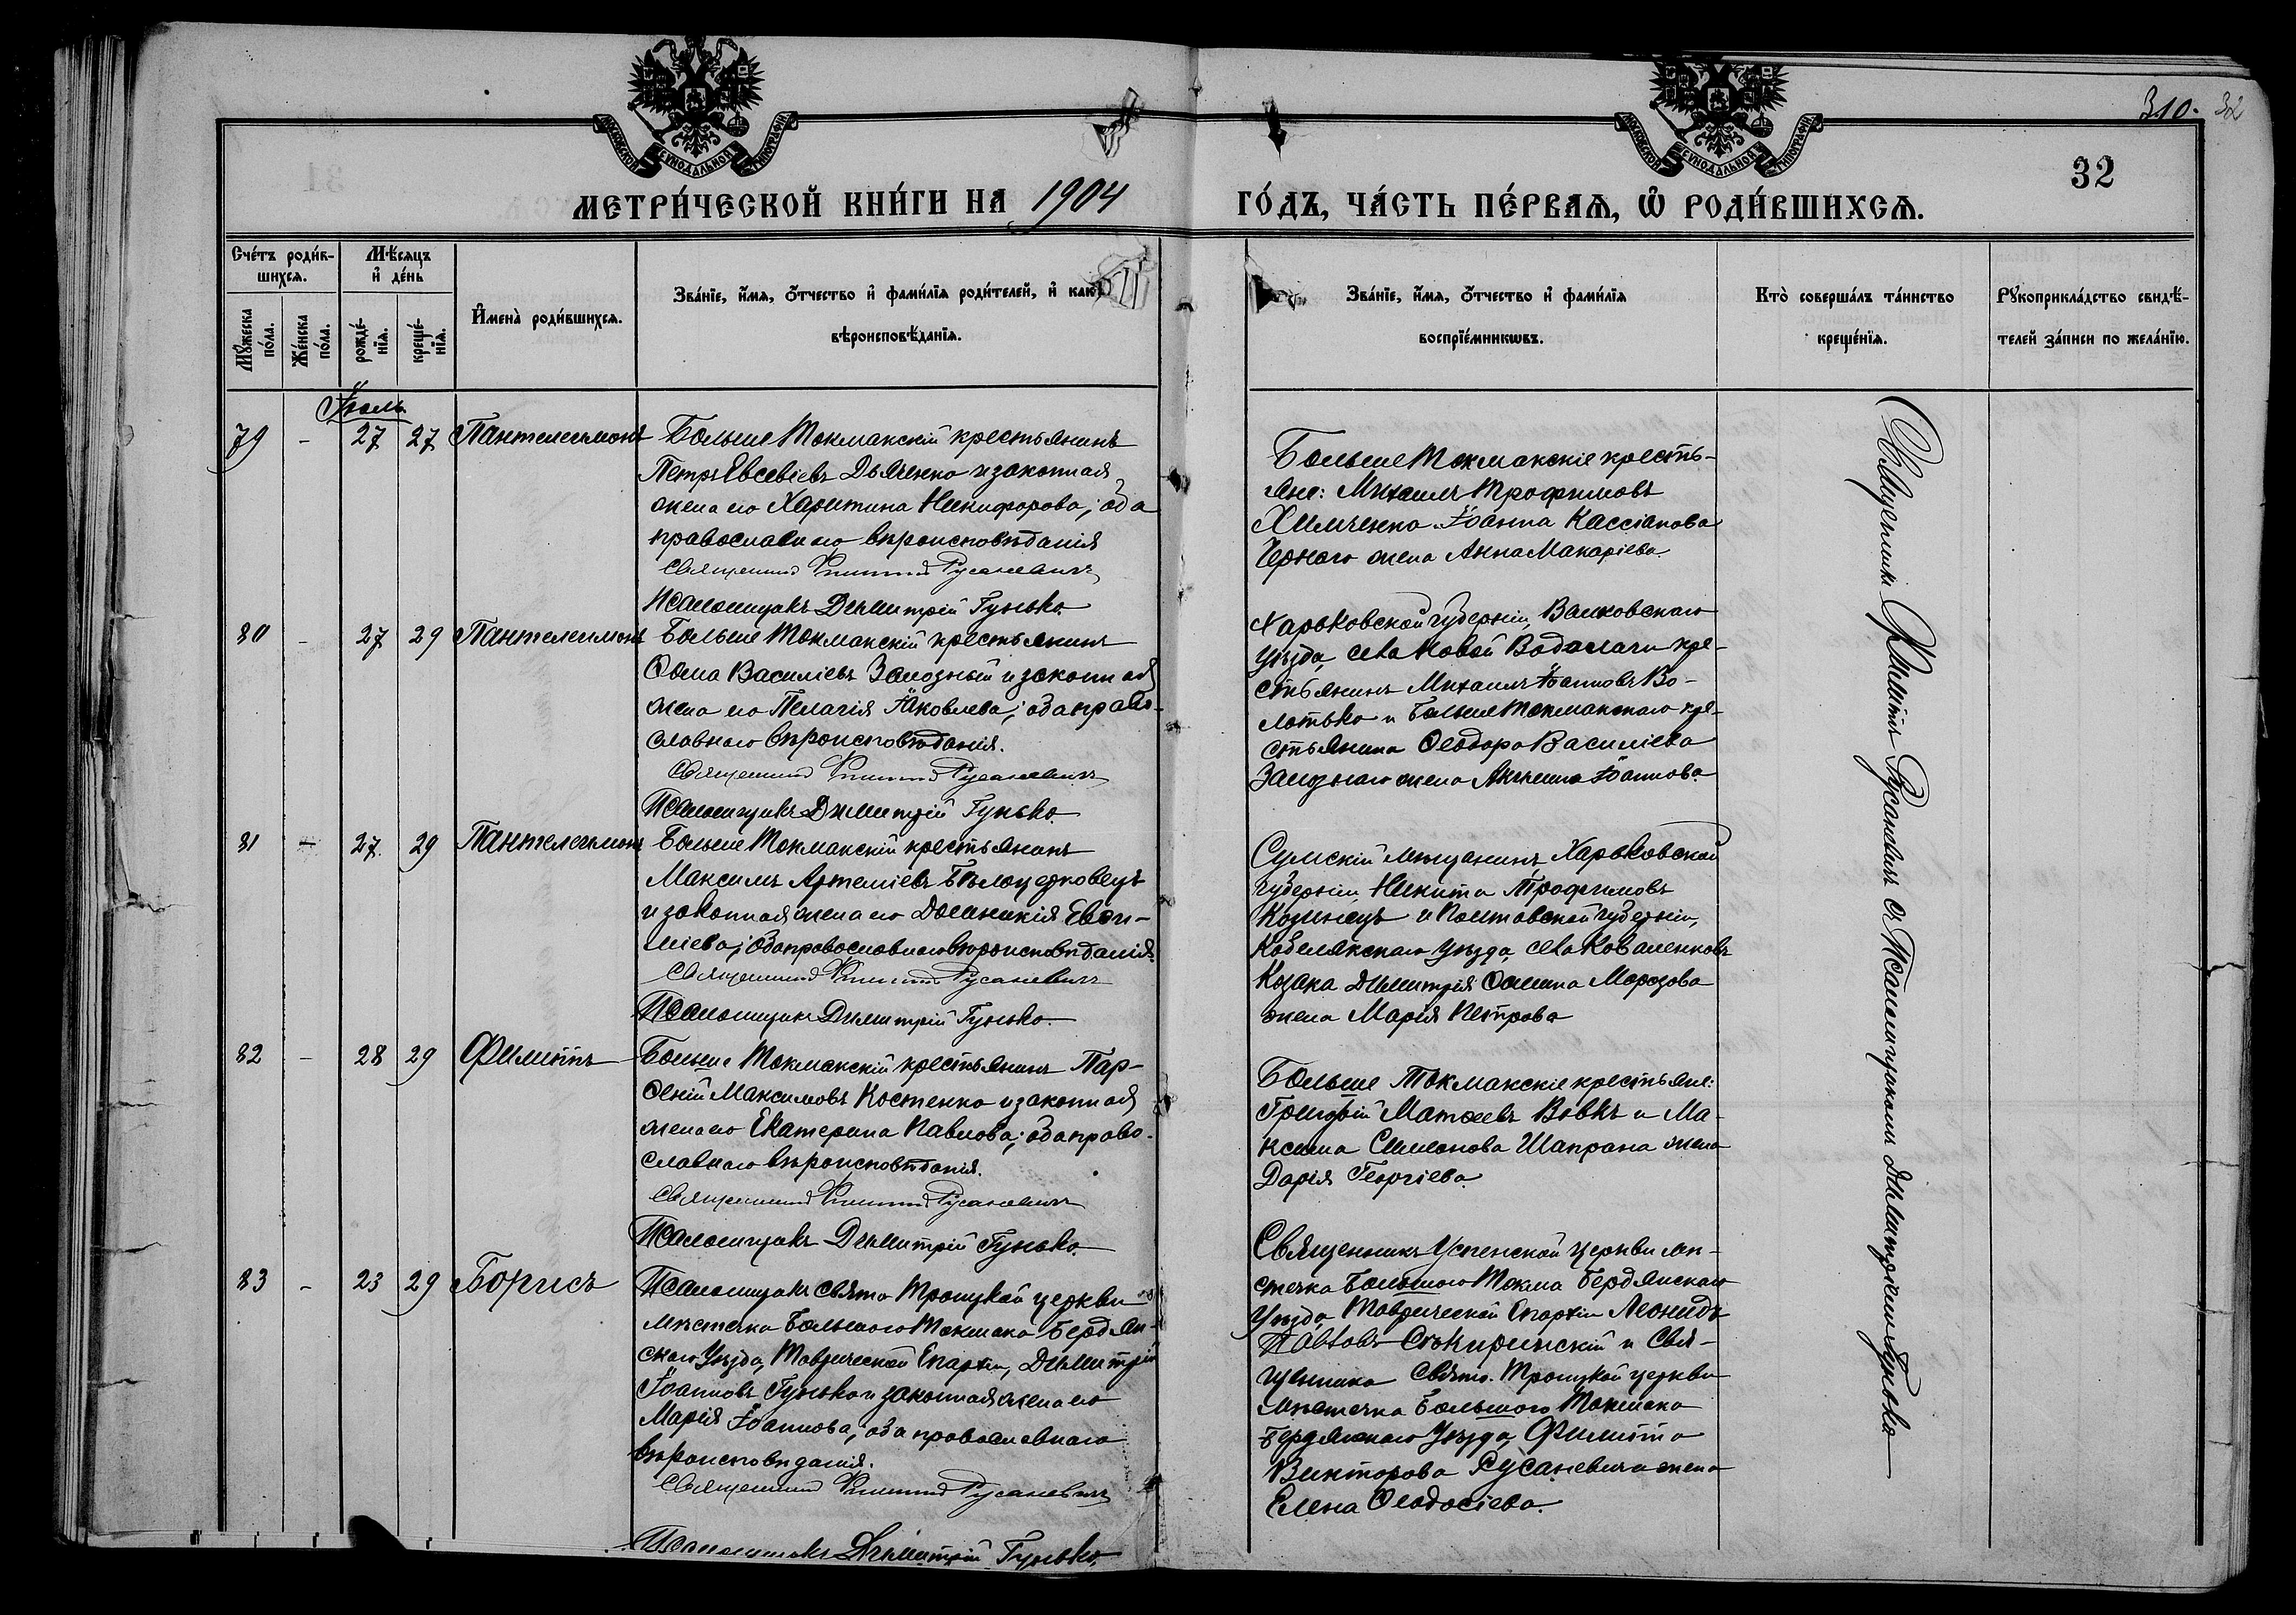 310. 32
32
МОСКОВСКОЙ СѴНОДАЛЬНОЙ ТИПОГРАФІИ
МОСКОВСКОЙ СѴНОДАЛЬНОЙ ТИПОГРАФІИ
МЕТРИ́ЧЕСКОЙ КНИ́ГИ НА 1904 ГО́ДЪ, ЧА́СТЬ ПЕ́РВАЯ, Ѡ҆ РОДИ́ВШИХСЯ.
Сче́тъ роди́в-
шихся.
Мꙋ́жеска по́ла.
Же́нска по́ла.
Мѣ́сяцъ
и҆ де́нь
рожде́-
нїя.
креще́-
нїя.
И҆мена̀ роди́вшихся.
Зва́нїе, и҆́мя, ѻ҆́тчество и҆ фами́лїя роди́телей, и҆ как
вѣроисповѣ́данїя.
Зва́нїе, и҆́мя, ѻ҆́тчество и҆ фами́лїя
воспрїе́мникѡвъ.
Кто̀ соверша́лъ та́инство
креще́нїя.
Рꙋкоприкла́дство свидѣ́-
телей за́писи по жела́нїю.
Іюль.
79 - 27 27 Пантелеимонъ
Больше Токмакскій крестьянинъ
Петръ Евсевіевъ Дьяченко и законная
жена его Харитина Никифорова; оба
православнаго вѣроисповѣданія
Священникъ Филиппъ Русаневичъ
Псаломщикъ Димитрій Гунько.
Больше Токмакскіе кресть-
яне: Михаилъ Трофимовъ
Химченко Іоанна Кассіанова
Чернаго жена Анна Макаріева.
80 - 27 29 Пантелеимонъ
Больше Токмакскій крестьянинъ
Ѳома Василіевъ Заюзный и законная
жена его Пелагія Іаковлева; оба право-
славнаго вѣроисповѣданія.
Священникъ Филиппъ Русаневичъ
Псаломщикъ Димитрій Гунько.
Харьковской губерніи, Валковскаго
уѣзда, села Новой Водолаги кре-
стьянинъ Михаилъ Іоанновъ Во-
лотько и Больше Токмакскаго кре-
стьянина Ѳеодора Василіева
Заюзнаго жена Акилина Іоаннова.
81 - 27. 29 Пантелеимонъ
Больше Токмакскій крестьянинъ
Максимъ Артеміевъ Бѣлоцерковецъ
и законная жена его Домникія Евѳи-
міева; оба православнаго вѣроисповѣданія.
Священникъ Филиппъ Русаневичъ
Псаломщикъ Димитрій Гунько.
Сумскій мѣщанинъ, Харьковской
губерніи, Никита Трофимовъ
и Полтавской губерніи,
Кобелякскаго уѣзда, села Коваленковъ
Козака Димитрія Ѳомина Морозова
жена Марія Петрова
82 - 28 29 Филиппъ
Больше Токмакскій крестьянинъ Пар-
ѳеній Максимовъ Костенко и законная
жена его Екатерина Павлова; оба право-
славнаго вѣроисповѣданія.
Священникъ Филиппъ Русаневичъ
Псаломщикъ Димитрій Гунько.
Больше Токмакскіе крестьяне:
Григорій Матѳеевъ Вовкъ и Ма-
ксима Симеонова Шапрана жена
Дарія Георгіева.
83 - 23 29 Борисъ
Псаломщикъ Свято Троицкой церкви
мѣстечка Большого Токмака Бердян-
скаго уѣзда, Таврической Епархіи, Димитрій
Іоанновъ Гунько и законная жена его
Марія Іоаннова, оба православнаго
вѣроисповѣданія.
Священникъ Филиппъ Русаневичъ
Псаломщикъ Димитрій Гунько.
Священникъ Успенской церкви мѣ-
стечка Большого Токма Бердянскаго
уѣзда, Таврической Епархіи Леонидъ
Павловъ Сѣкиринскій и Свя-
щенника Свято. Троицкой церкви
мѣстечка Большого Токмака
Бердянскаго уѣзда, Филиппа
Викторова Русаневича жена
Елена Ѳеодосіева.
Священникъ Филиппъ Русаневичъ съ Псаломщикомъ Димитріемъ Гунько